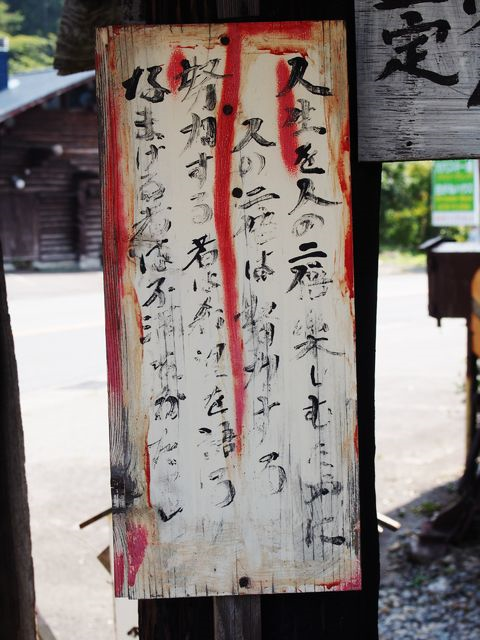 人生を人の二倍楽しむ為に
人の二倍は努力する
努力する者は希望を語り
なまける者は不満をかたる
定